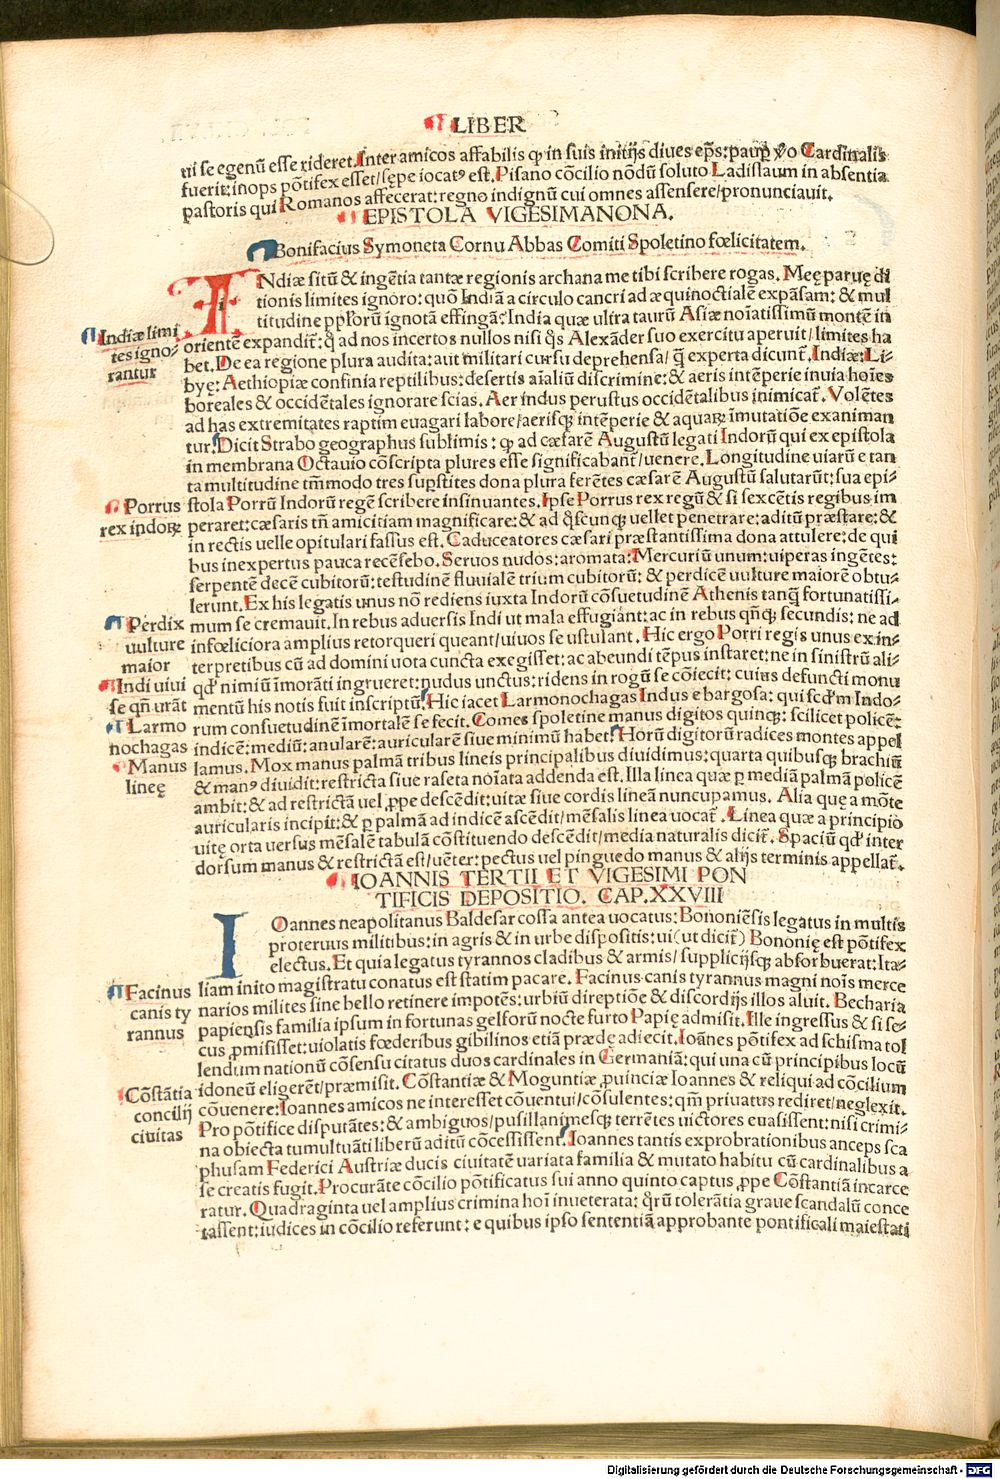 LIBER
ri se egenū esse rideret. Inter amicos affabilis ꝙ in suis initijs diues ep̄s: paup̱ v̄o Cardinalis
fuerit: inops pōtifex esset/ sępe iocatꝰ est. Pisano cōcilio nōdū soluto Ladislaum in absentia
pastoris qui Romanos affecerat: regno indignū cui omnes assensere/ pronunciauit.
EPISTOLA VIGESIMANONA.
Bonifacius Symoneta Cornu Abbas Comiti Spoletino fœlicitatem.
INdiæ sitū & ingētia tantæ regionis archana me tibi scribere rogas. Meę paruę di
tionis limites ignoro: quō Indiā a circulo cancri ad æquinoctialē expāsam: & mul
titudine pp̄lorū ignotā effingā? India quæ ultra taurū Asiæ noīatissimū montē in
Indiæ limi
tes igno⸗
rantur
orientē expandit̄: q̄ ad nos incertos nullos nisi q̄s Alexāder suo exercitu aperuit/ limites ha
bet. De ea regione plura audita: aut militari cursu deprehensa/ q̄ experta dicunt̄. Indiæ: Li⸗
byę: Aethiopiæ confinia reptilibus: desertis aīaliū discrimine: & aeris intēperie inuia hoīes
boreales & occidētales ignorare scias. Aer indus perustus occidētalibus inimicat̄. Volētes
ad has extremitates raptim euagari labore/ aerisqꝫ intēperie & aquaꝝ īmutatiōe exaniman
tur. Dicit Strabo geographus sublimis: ꝙ ad cæsarē Augustū legati Indorū qui ex epistola
in membrana Octauio cōscripta plures esse significabant̄/ uenere. Longitudine uiarū e tan
ta multitudine tm̄modo tres supstites dona plura ferētes cæsarē Augustū salutarūt: sua epi⸗
Porrus
rex indoꝝ
stola Porrū Indorū regē scribere insinuantes. Ipse Porrus rex regū & si sexcētis regibus im
peraret: cæsaris tn̄ amicitiam magnificare: & ad q̄scunqꝫ uellet penetrare: aditū præstare: &
in rectis uelle opitulari fassus est. Caduceatores cæsari præstantissima dona attulere: de qui
bus inexpertus pauca recēsebo. Seruos nudos: aromata: Mercuriū unum: uiperas ingētes:
serpentē decē cubitorū: testudinē fluuialē trium cubitorū: & perdicē uulture maiorē obtu⸗
lerunt. Ex his legatis unus nō rediens iuxta Indorū cōsuetudinē Athenis tanq̄ fortunatissi⸗
Perdix
uulture
maior
mum se cremauit. In rebus aduersis Indi ut mala effugiānt: ac in rebus qn̄qꝫ secundis: ne ad
infœliciora amplius retorqueri queant/ uiuos se ustulant. Hic ergo Porri regis unus ex in⸗
terpretibus cū ad domini uota cuncta exegisset: ac abeundi tēpus instaret: ne in sinistrū ali⸗
Indi uiui
se qn̄ urāt
qd̕ nimiū īmorāti ingrueret: nudus unctus: ridens in rogū se cōiecit: cuius defuncti monu
mentū his notis fuit inscriptū. Hic iacet Larmonochagas Indus e bargosa: qui scd̕m Indo⸗
Larmo
nochagas
rum consuetudinē īmortalē se fecit. Comes spoletine manus digitos quinqꝫ: scilicet policē:
indicē: mediū: anularē: auricularē siue minimū habet. Horū digitorū radices montes appel
Manus
lineę
lamus. Mox manus palmā tribus lineis principalibus diuidimus: quarta quibusqꝫ brachiū
& manꝰ diuidit: restricta siue raseta noīata addenda est. Illa linea quæ p̱ mediā palmā policē
ambit: & ad restrictā uel ꝓpe descēdit: uitæ siue cordis lineā nuncupamus. Alia quę a mōte
auricularis incipit: & p̱ palmā ad indicē ascēdit/ mēsalis linea uocat̄. Linea quæ a principio
uitę orta uersus mēsalē tabulā cōstituendo descēdit/ media naturalis dicit̄. Spaciū qd̕ inter
dorsum manus & restrictā est/ uēter: pectus uel pinguedo manus & alijs terminis appellat̄.
IOANNIS TERTII ET VIGESIMI PON
TIFICIS DEPOSITIO. CAP. XXVIII
IOannes neapolitanus Baldesar cossa antea uocatus: Bononiēsis legatus in multis
proteruus militibus: in agris & in urbe dispositis: ui (ut dicit̄) Bononię est pōtifex
electus. Et quia legatus tyrannos cladibus & armis/ supplicijsqꝫ absorbuerat: Ita⸗
Facinus
canis ty
rannus
liam inito magistratu conatus est statim pacare. Facinus canis tyrannus magni noīs merce
narios milites sine bello retinere impotēs: urbiū direptiōe & discordijs illos aluit. Becharia
papiensis familia ipsum in fortunas gelforū nocte furto Papię admisit. Ille ingressus & si se⸗
cus ꝓmisisset: uiolatis fœderibus gibilinos etiā prædę adiecit. Ioānes pōtifex ad schisma tol
lendum nationū cōsensu citatus duos cardinales in Germaniā: qui una cū principibus locū
Cōstātia
concilij
ciuitas
idoneū eligerēt/ præmisit. Cōstantiæ & Moguntiæ ꝓuinciæ Ioannes & reliqui ad cōcilium
cōuenere: Ioannes amicos ne interesset cōuentui/ cōsulentes: qm̄ priuatus rediret/ neglexit.
Pro pōtifice disputātes: & ambiguos/ pusillanimesqꝫ terrētes uictores euasissent: nisi crimi⸗
na obiecta tumultuāti liberū aditū cōcessissent. Ioannes tantis exprobrationibus anceps sca
phusam Federici Austriæ ducis ciuitatē uariata familia & mutato habitu cū cardinalibus a
se creatis fugit. Procurāte cōcilio pōtificatus sui anno quinto captus ꝓpe Cōstantiā incarce
ratur. Quadraginta uel amplius crimina hoī inueterata: q̄rū tolerātia graue scandalū conce
tassent: iudices in cōcilio referunt: e quibus ipso sententiā approbante pontificali maiestati
Digitalisierung gefördert durch die Deutsche Forschungsgemeinschaft - DFG